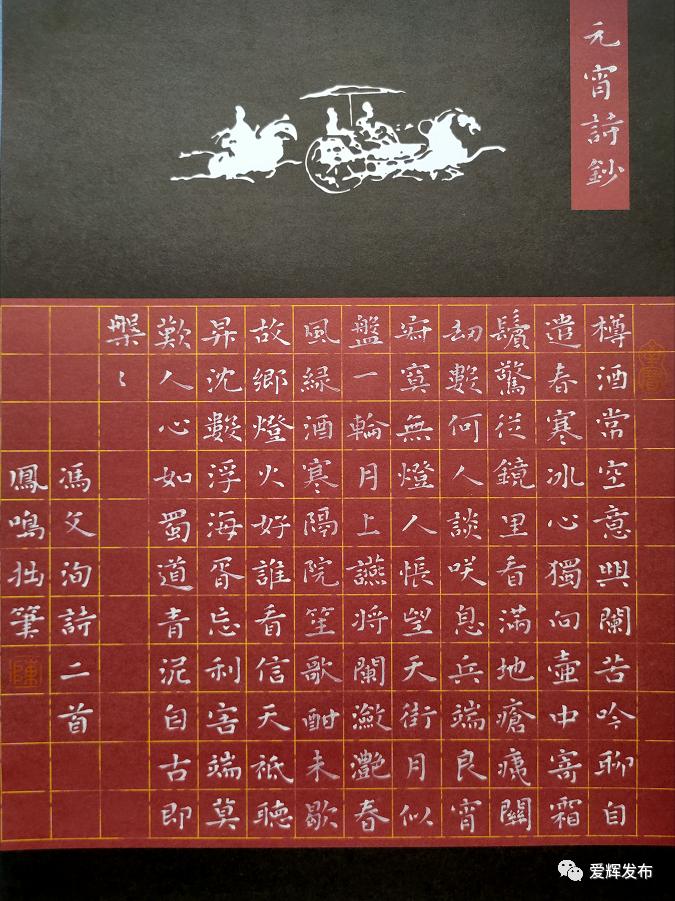 元宵詩鈔
樽酒常空意興闌苦吟聊自
遣春寒冰心獨向壺中寄霜
鬢驚從鏡里看滿地瘡痍關
劫數何人談咲息兵端良宵
寂寞無燈人悵望天街月似
盤一輪月上讌將闌瀲灔春
風緑酒寒隔院笙歌酣未歇
故鄉燈火好誰看信天祗聽
昇沈數浮海胥忘利害端莫
歎人心如蜀道青泥自古即
槃〻
馮文洵詩二首
鳳鳴拙筆
爱辉发布